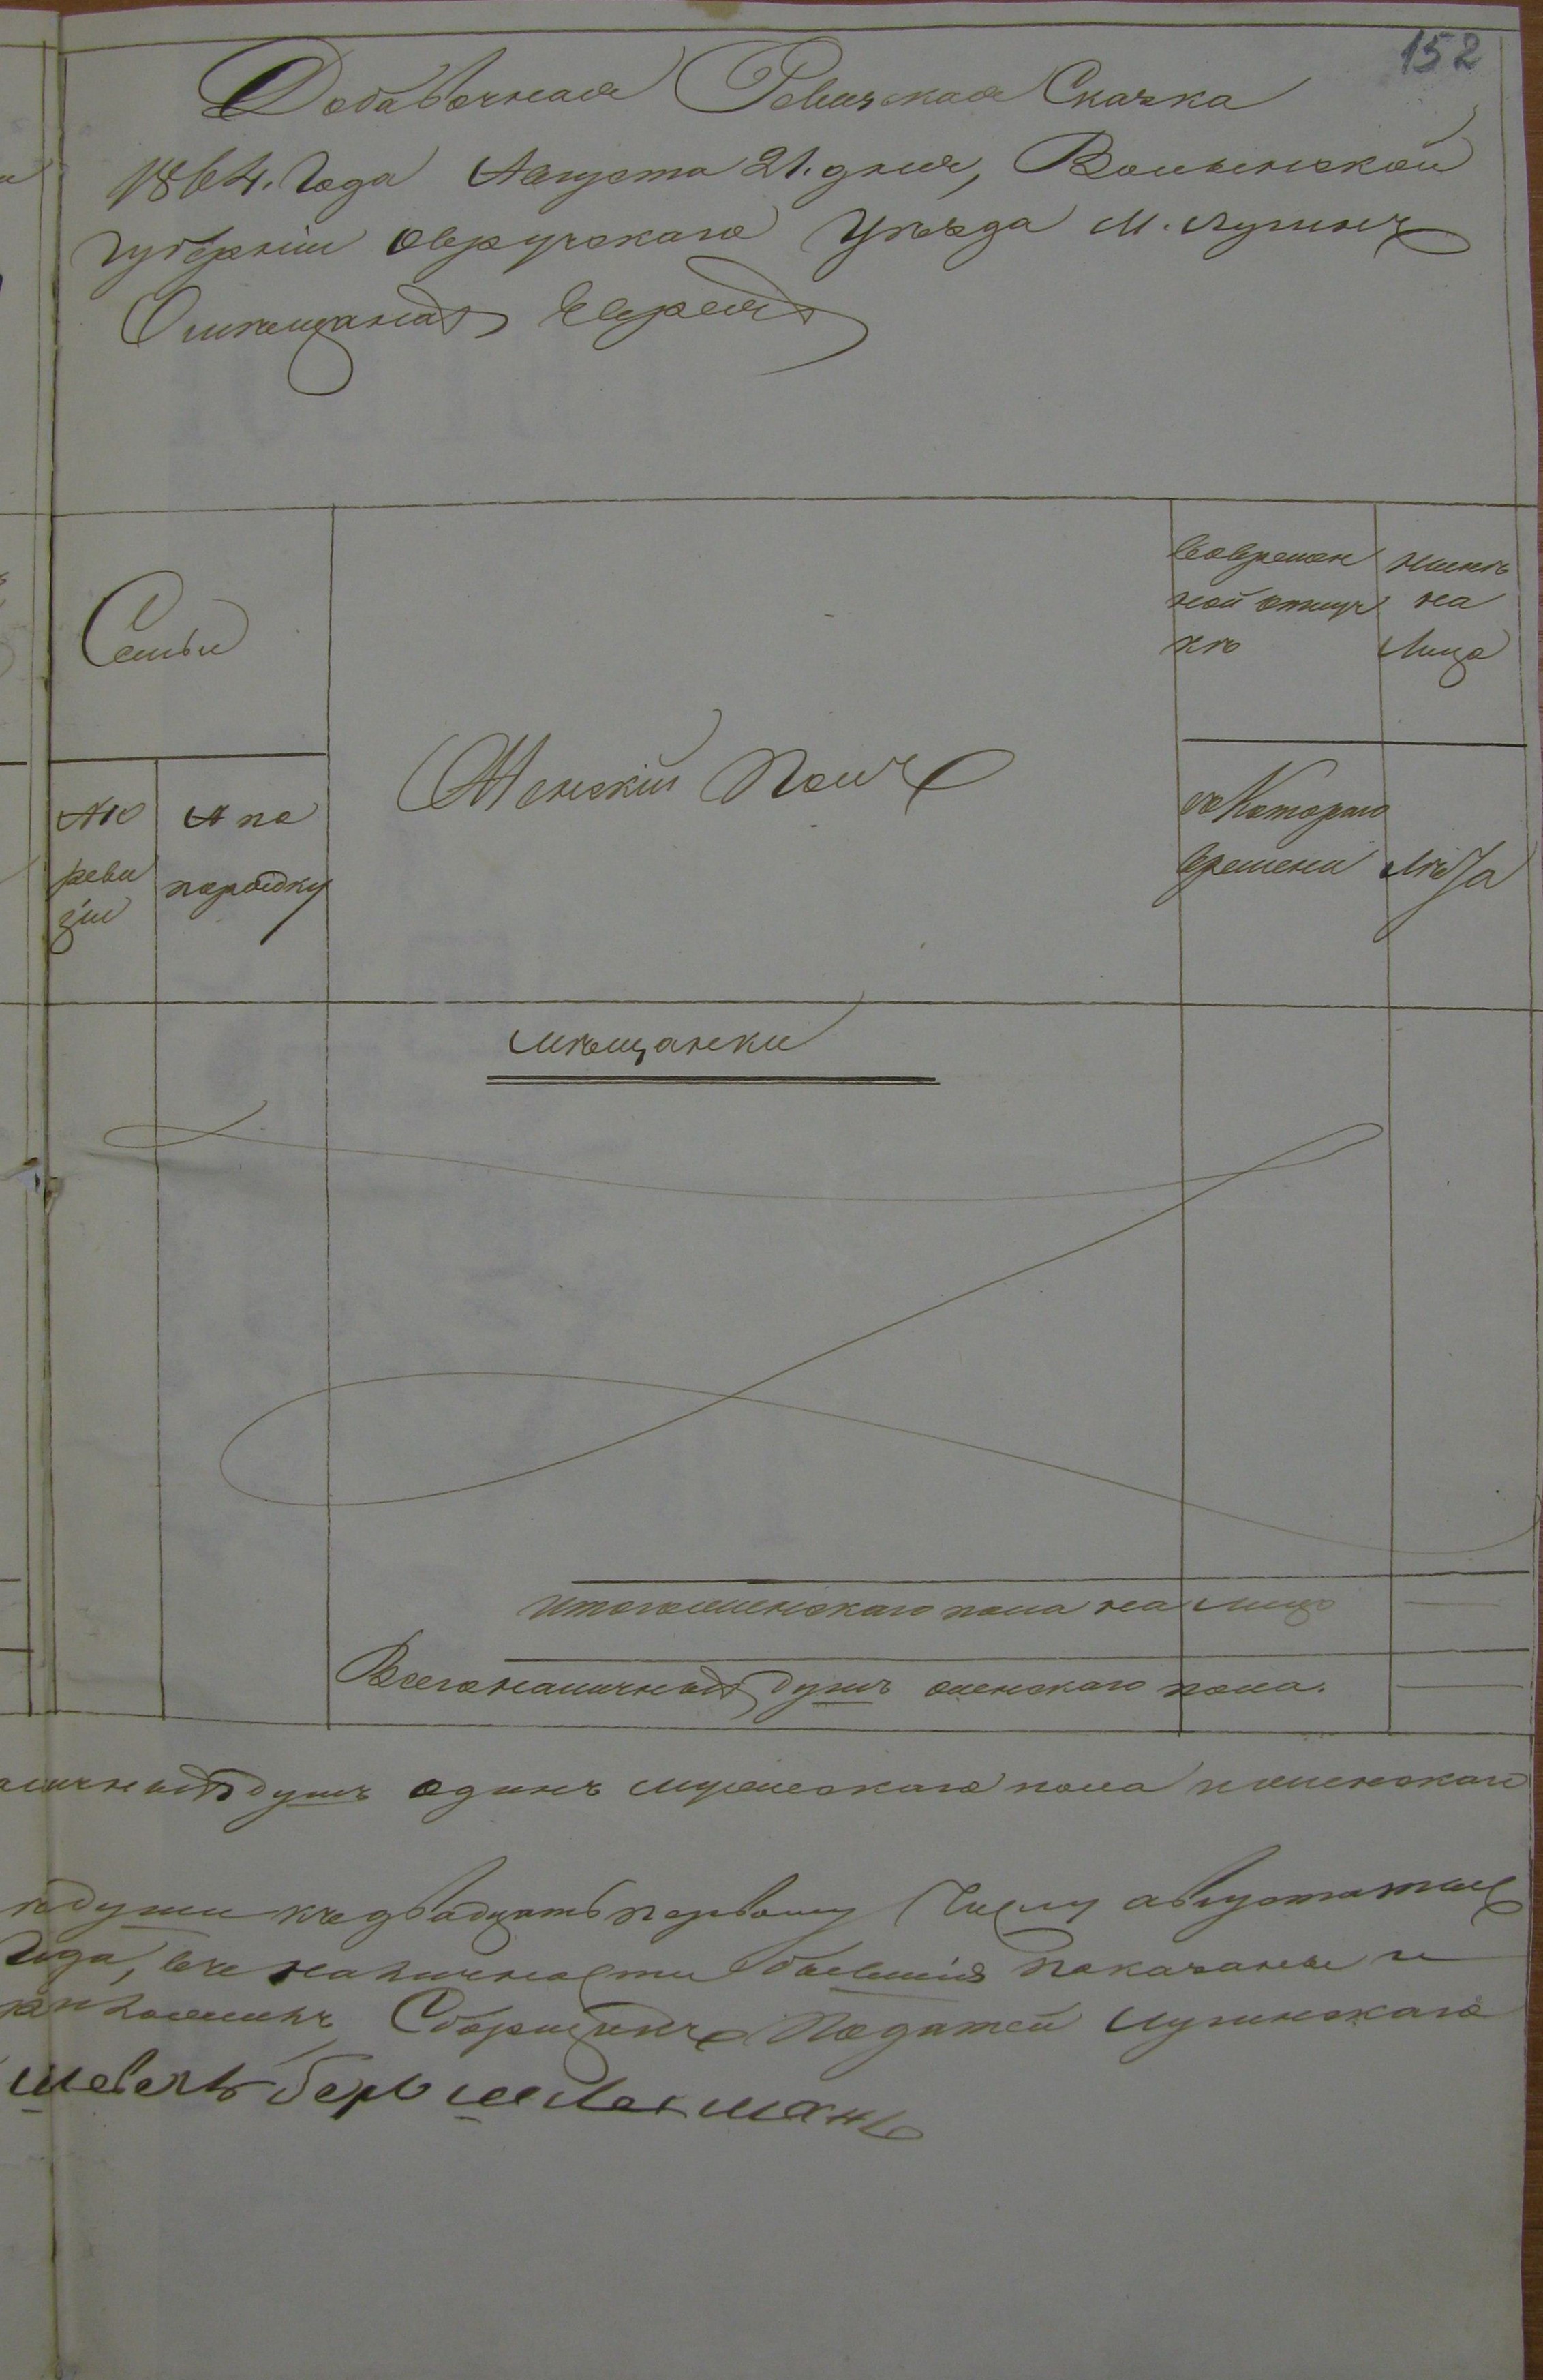 152
Добавочная Ревизская Сказка
1864. Года Августа 21. дня, Волынской
губерніи Овручскаго Уѣзда М. Лугинъ
О мѣщанахъ Евреяхъ
Семьи
Женскій Полъ
Во времен
ной отлуч
кѣ
нынѣ
на
Лицо
№ 10
реви
зіи
№ по
порядку
съ Котораго
времени
Лѣта
мѣщанки
Итого женскаго пола на лицо
Всего наличныхъ душъ женскаго пола.
душъ одинъ мужескаго пола и женскаго
души къ двадцать первому Числу августа
Года, въ наличности бывшія показаны и
Сборщикъ Податей Лугинскаго